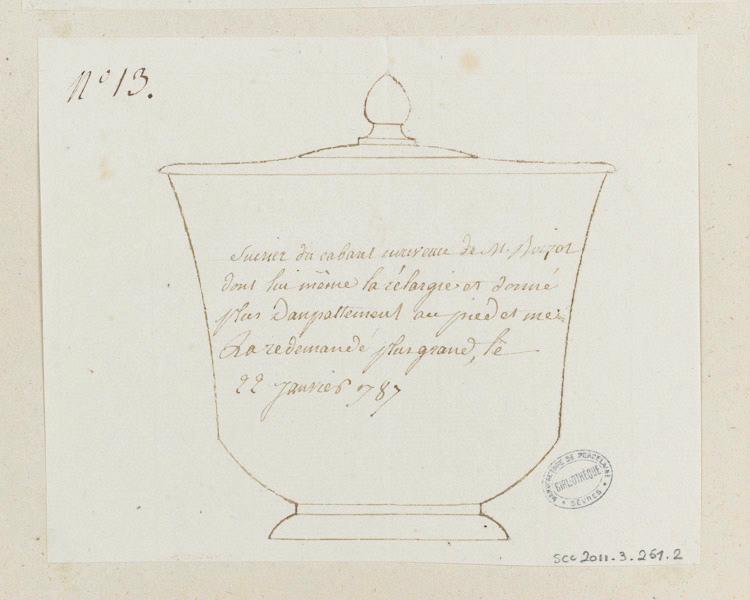 N° 13.
Sucrier du cabaret nouveau de M. Boizot
dont lui même la rélargie et donné
plus Danpattement au pied et me
La redemandé plus grand, le
22 janvier 1787
MANUFACTURE DE PORCELAINE
BIBLIOTHÈQUE
* SÈVRES *
SCC 2011-3-261.2